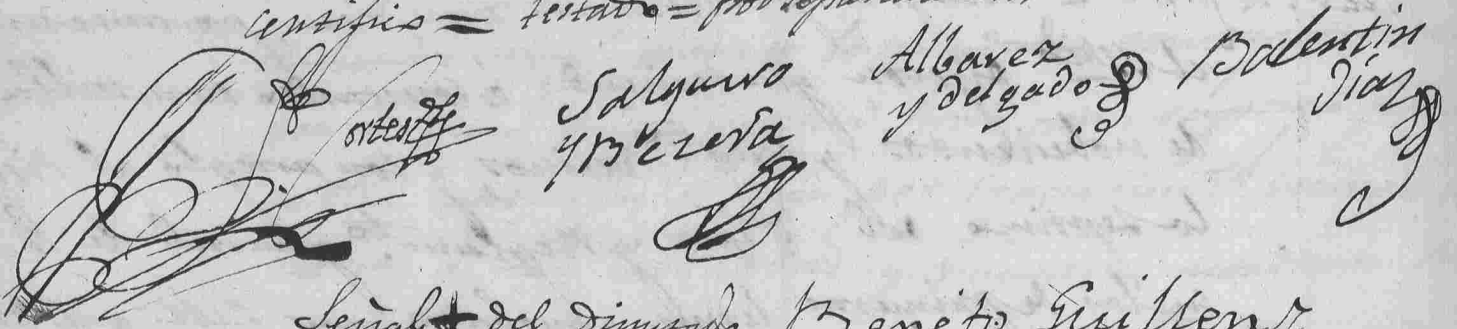 Certifico = testado =
Salguero
y Bezerra
Albarez
y delgado
Balentin
Díaz
Señal + del Diputado Benito Guillen